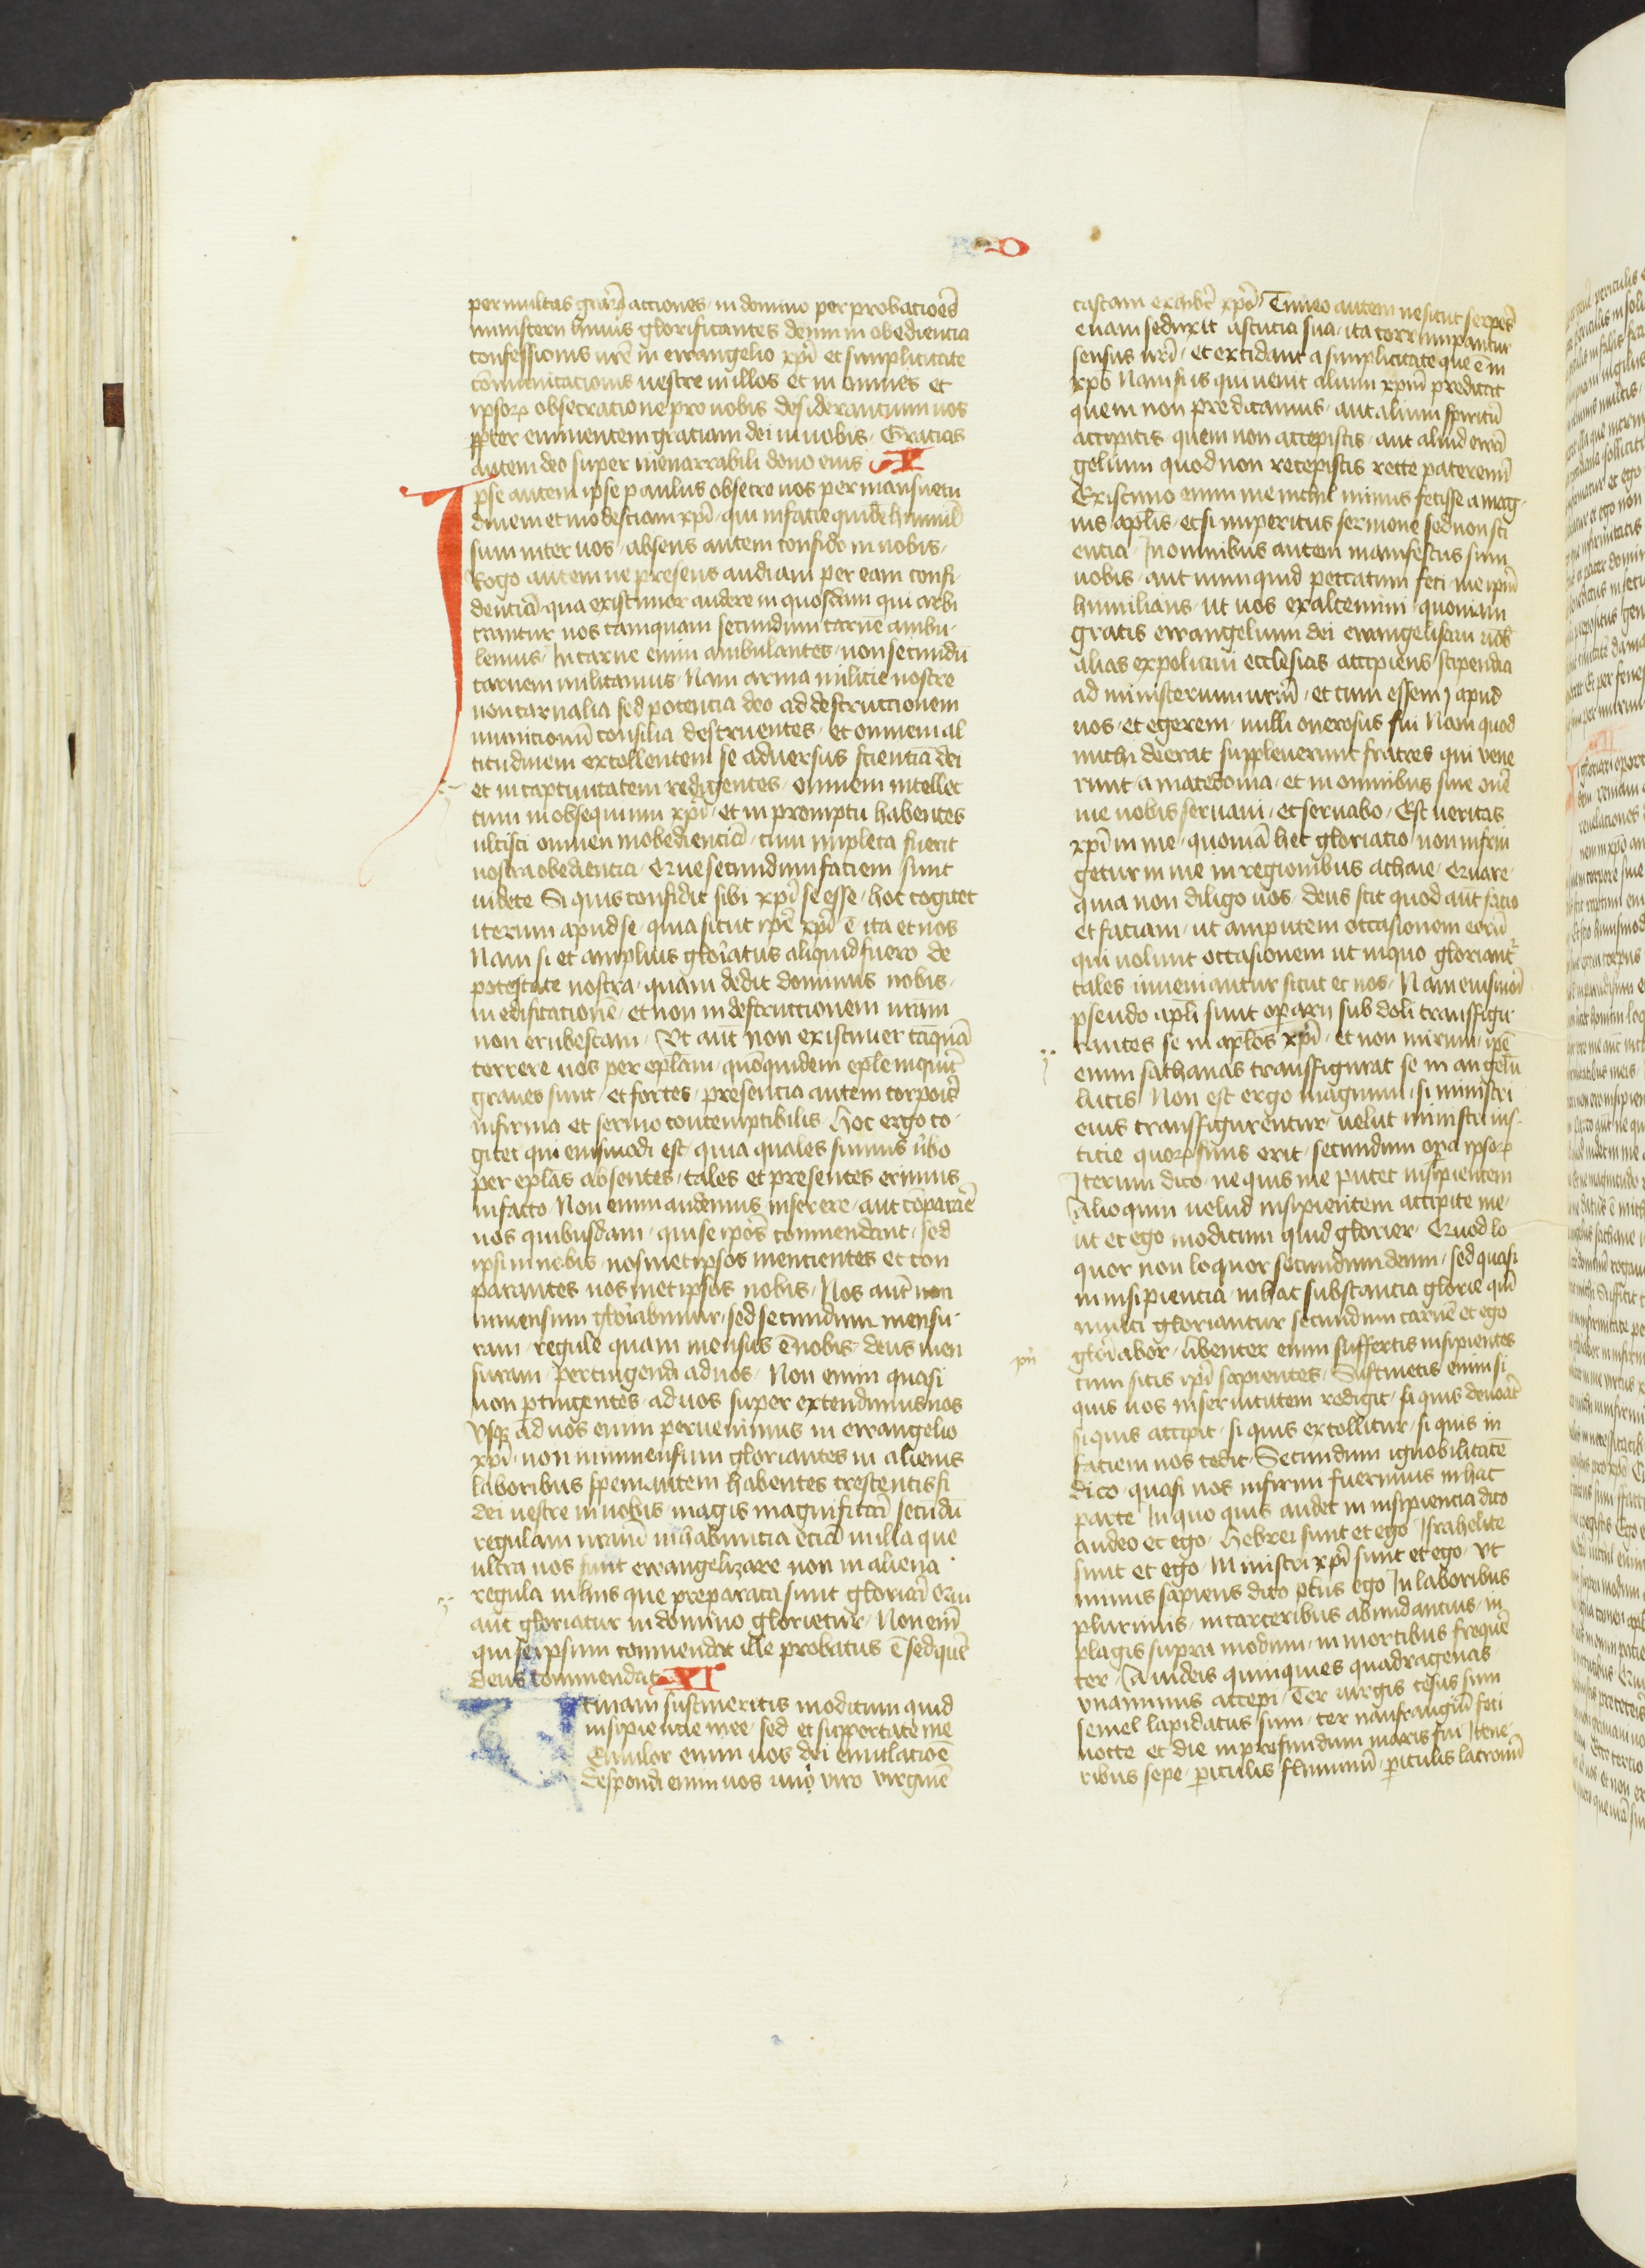 D
per multas grar̃ acciones in domino per probacioẽs
ministerii huius glorificantes deum in obediencia
confessionis vrẽ in ewangelio xp̃i et simplicitate
cõmunicacionis uestre in illos et in omnes et
ipsorꝝ obsecratione pro uobis desiderancium uos
ꝓpter eminentem graciam dei in uobis Gracias
autem deo super inenarrabili dono eius X
Ipse autem ipse paulus obsecro uos per mansuetu
dinem et modestiam xp̃i qui in facie quidẽ humil̃
sum inter uos absens autem confido in uobis
Rogo autem ne presens audiam per eam confi
denciã qua existimor audere in quosdam qui arbi
trantur nos tamquam secundum carnẽ ambu
lemus In carne enim ambulantes non secundũ
carnem militamus Nam arma milicie nostre
non carnalia sed potencia deo ad destruccionem
municionũ consilia destruentes et omnem al
titudinem extollentem se aduersus scienciã dei
et in captiuitatem redigentes omnem intellec
tum in obsequium xp̃i et in promptu habentes
ulcisci omnem inobedienciã cum impleta fuerit
uestra obediencia Que secundum faciem sunt
uidete Si quis confidit sibi xp̃i se esse hoc cogitet
iterum apud se quia sicut ip̃e xp̃i ẽ ita et nos
Nam si et amplius gloriatus aliquid fuero de
potestate nostra quam dedit dominus nobis
in edificacionẽ et non in destruccionem vrãm
non erubescam Vt aut̃ non existimer tãquã
terrere uos per ep̃lam quõquidem ep̃le inquiũt
graues sunt et fortes presencia autem corporis̃
infirma et sermo contemptibilis Hoc ergo co
gitet qui eiusmodi est quia quales sumus ũbo
per ep̃las absentes tales et presentes erimus
in facto Non enim audemus inserere aut cõparaẽ
nos quibusdam qui se ip̃os commendant sed
ipsi in nobis nosmetipsos mencientes et con
parantes nosmetipsos nobis Nos aut̃ non
inmensum gloriabimur sed secundum mensu
ram regule quam mensus ẽ nobis deus men
suram pertingendi ad uos Non enim quasi
non ꝑtingentes ad uos super extendimus nos
Vsqꝫ ad uos enim peruenimus in ewangelio
xp̃i non in inmensum gloriantes in alienis
laboribus spem autem habentes crescentis fi
dei uestre in uobis magis magnificari secũdũ
regulam nram̃ in habuncia eciã in illa que
ultra uos sunt ewangelizare non in aliena
regula in hiis que preparata sunt gloriari Qui
aut̃ gloriatur in domino glorietur Non eni
qui se ipsum commendat ille probatus ẽ sed quẽ
deus commendat XI
Vtinam sustineritis modicum quid
insipiencie mee sed et supportate me
Emulor enim uos dei emulacioẽ
despondi enim uos uni viro virginẽ
castam exhiber̃ xp̃o Timeo autem ne sicut serpẽs
euam seduxit astucia sua ita corrumpantur
sensus vrĩ et excidant a simplicitate que ẽ in
xp̃o Nam si is qui uenit alium xp̃m predicat
quem non predicamus aut alium spiritũ
accipitis quem non accepistis aut aliud ewã
gelium quod non recepistis recte pateremĩ
Existimo enim me nichil minus fecisse a mag
nis ap̃lis etsi inperitus sermone sed non sci
encia In omnibus autem manifestus sum
uobis aut numquid peccatum feci me ip̃m
humilians ut uos exaltemini quoniam
gratis ewangelium dei ewangelisaui uob̃
alias expoliaui ecclesias accipiens stipendia
ad ministerium vrm̃ et cum essem apud
uos et egerem nulli onerosus fui Nam quod
michi deerat suppleuerunt fratres qui vene
runt a macedonia et in omnibus sine onẽ
me uobis seruaui et seruabo Est ueritas
xp̃i in me quoniã hec gloriatio non infrin
getur in me in regionibus achaie Quare
quia non diligo uos deus scit quod aut̃ facio
et faciam ut amputem occasionem eorũ
qui uolunt occasionem ut in quo gloriant̃
tales inueniantur sicut et nos Nam eiusmod̃
pseudo ap̃li sunt operarii subdoli transfigu
rantes se in ap̃los xp̃i et non mirum ip̃e
enim sathanas transfigurat se in angelũ
lucis Non est ergo magnum si ministri
eius transfigurentur uelut ministri ius
ticie quorꝝ finis erit secundum oꝑa ipsorꝝ
Iterum dico ne quis me putet insipientem
Alioquin uelud insipientem accipite me
ut et ego modicum quid glorier Quod lo
quor non loquor secundum deum sed quasi
in insipiencia in hac substancia glorie qm̃
multi gloriantur secundum carnẽ et ego
gloriabor libenter enim suffertis insipientes
cum sitis ip̃i sapientes Sustinetis enim si
quis uos in seruitutem redigit si quis deuoãt
si quis accipit si quis extollitur si quis in
faciem uos cedit Secundum ignobilitatẽ
dico quasi nos infirmi fuerimus in hac
parte In quo quis audet in insipiencia dico
audeo et ego Hebrei sunt et ego Israhelite
sunt et ego Ministri xp̃i sunt et ego Vt
minus sapiens dico plus ego In laboribus
plurimis in carceribus abundancius in
plagis supra modum in mortibus frequẽ
ter A iudeis quinquies quadragenas
vnaminus accepi Ter uirgis cesus sum
semel lapidatus sum ter naufragiũ feci
nocte et die in profundum maris fui Itene
ribus sepe periculis fluminũ periculis latronũ